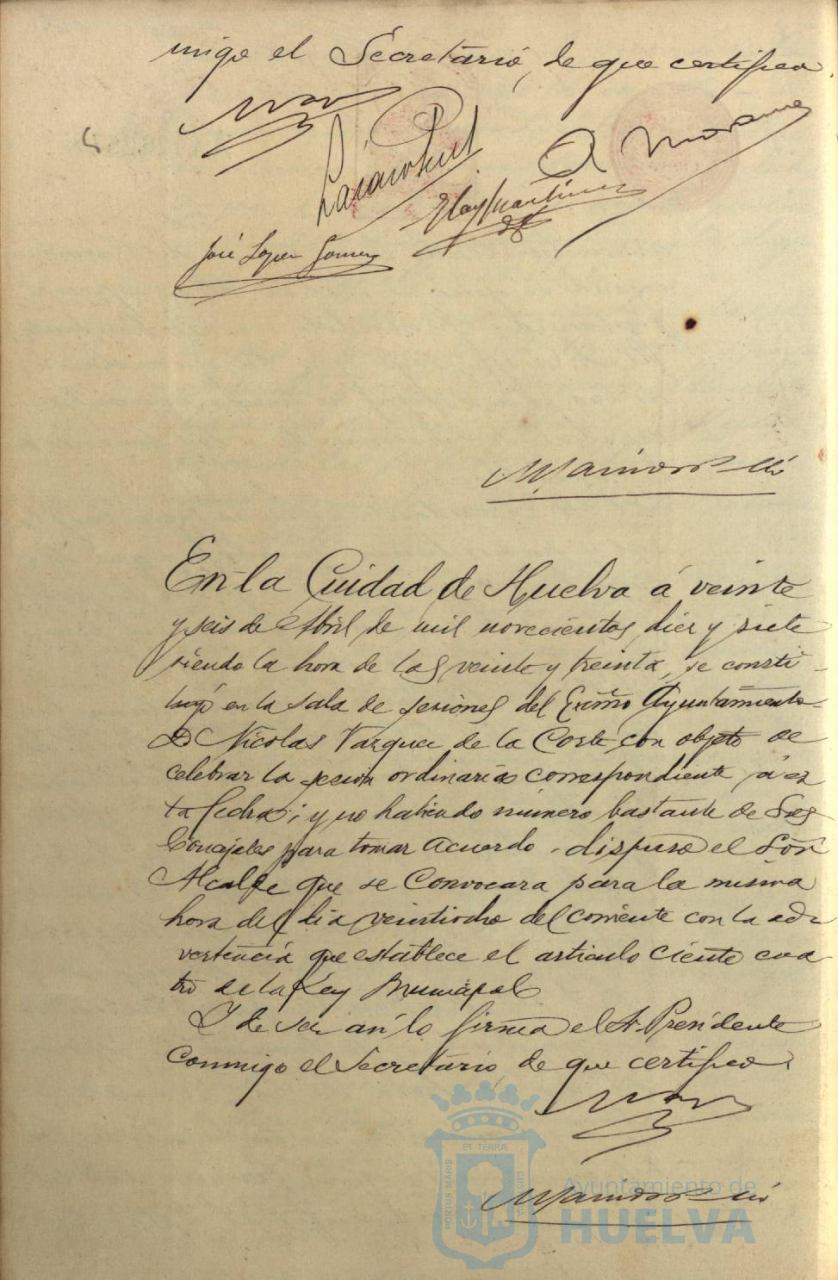 migo el Secretario, de que certifico.
José Lopez Gomez
Eloy Martinez
En la Cuidad de Huelva á veinte
y seis de Abril de mil novecientos diez y siete
siendo la hora de las veinte y treinta, se consti-
tuyó en la sala de sesiones del Excmo Ayuntamiento
D Nicolas Vazquez de la Corte con objeto de
celebrar la secion ordinaria correspondiente á es
ta fecha; y no habiendo número bastante de Sres
Concejales para tomar acuerdo, dispuso el Señr
Alcalde que se convocara para la misma
hora del dia veintiocho del corriente con la ad-
vertencia que establece el articulo ciento cua
tro de la Ley Municipal
Y de ser así lo firma el Sr. Presidente
conmigo el Secretario de que certifico.
Ayuntamiento de
HUELVA